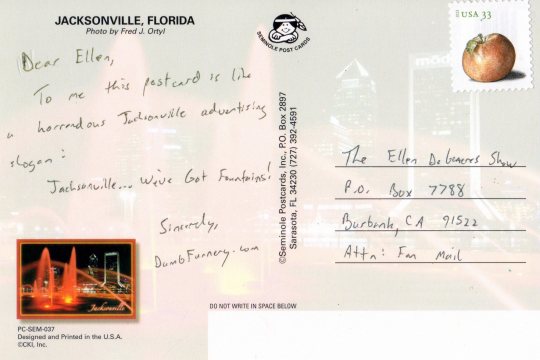 JACKSONVILLE, FLORIDA
Photo by Fred J. Ortyl
SEMINOLE POST CARDS
USA 33
Dear Ellen,
To me this postcard is like
a horrendous Jacksonville advertising
slogan:
Jacksonville... We've Got Fountains!
Sincerely,
DumbFunnery.com
©Seminole Postcards, Inc., P.O. Box 2897
Sarasota, FL 34230 (727) 392-4591
The Ellen DeGeneres Show
P.O. Box 7788
Burbank, CA 91522
Attn: Fan Mail
Jacksonville
DO NOT WRITE IN SPACE BELOW
PC-SEM-037
Designed and Printed in the U.S.A.
©CKI, Inc.